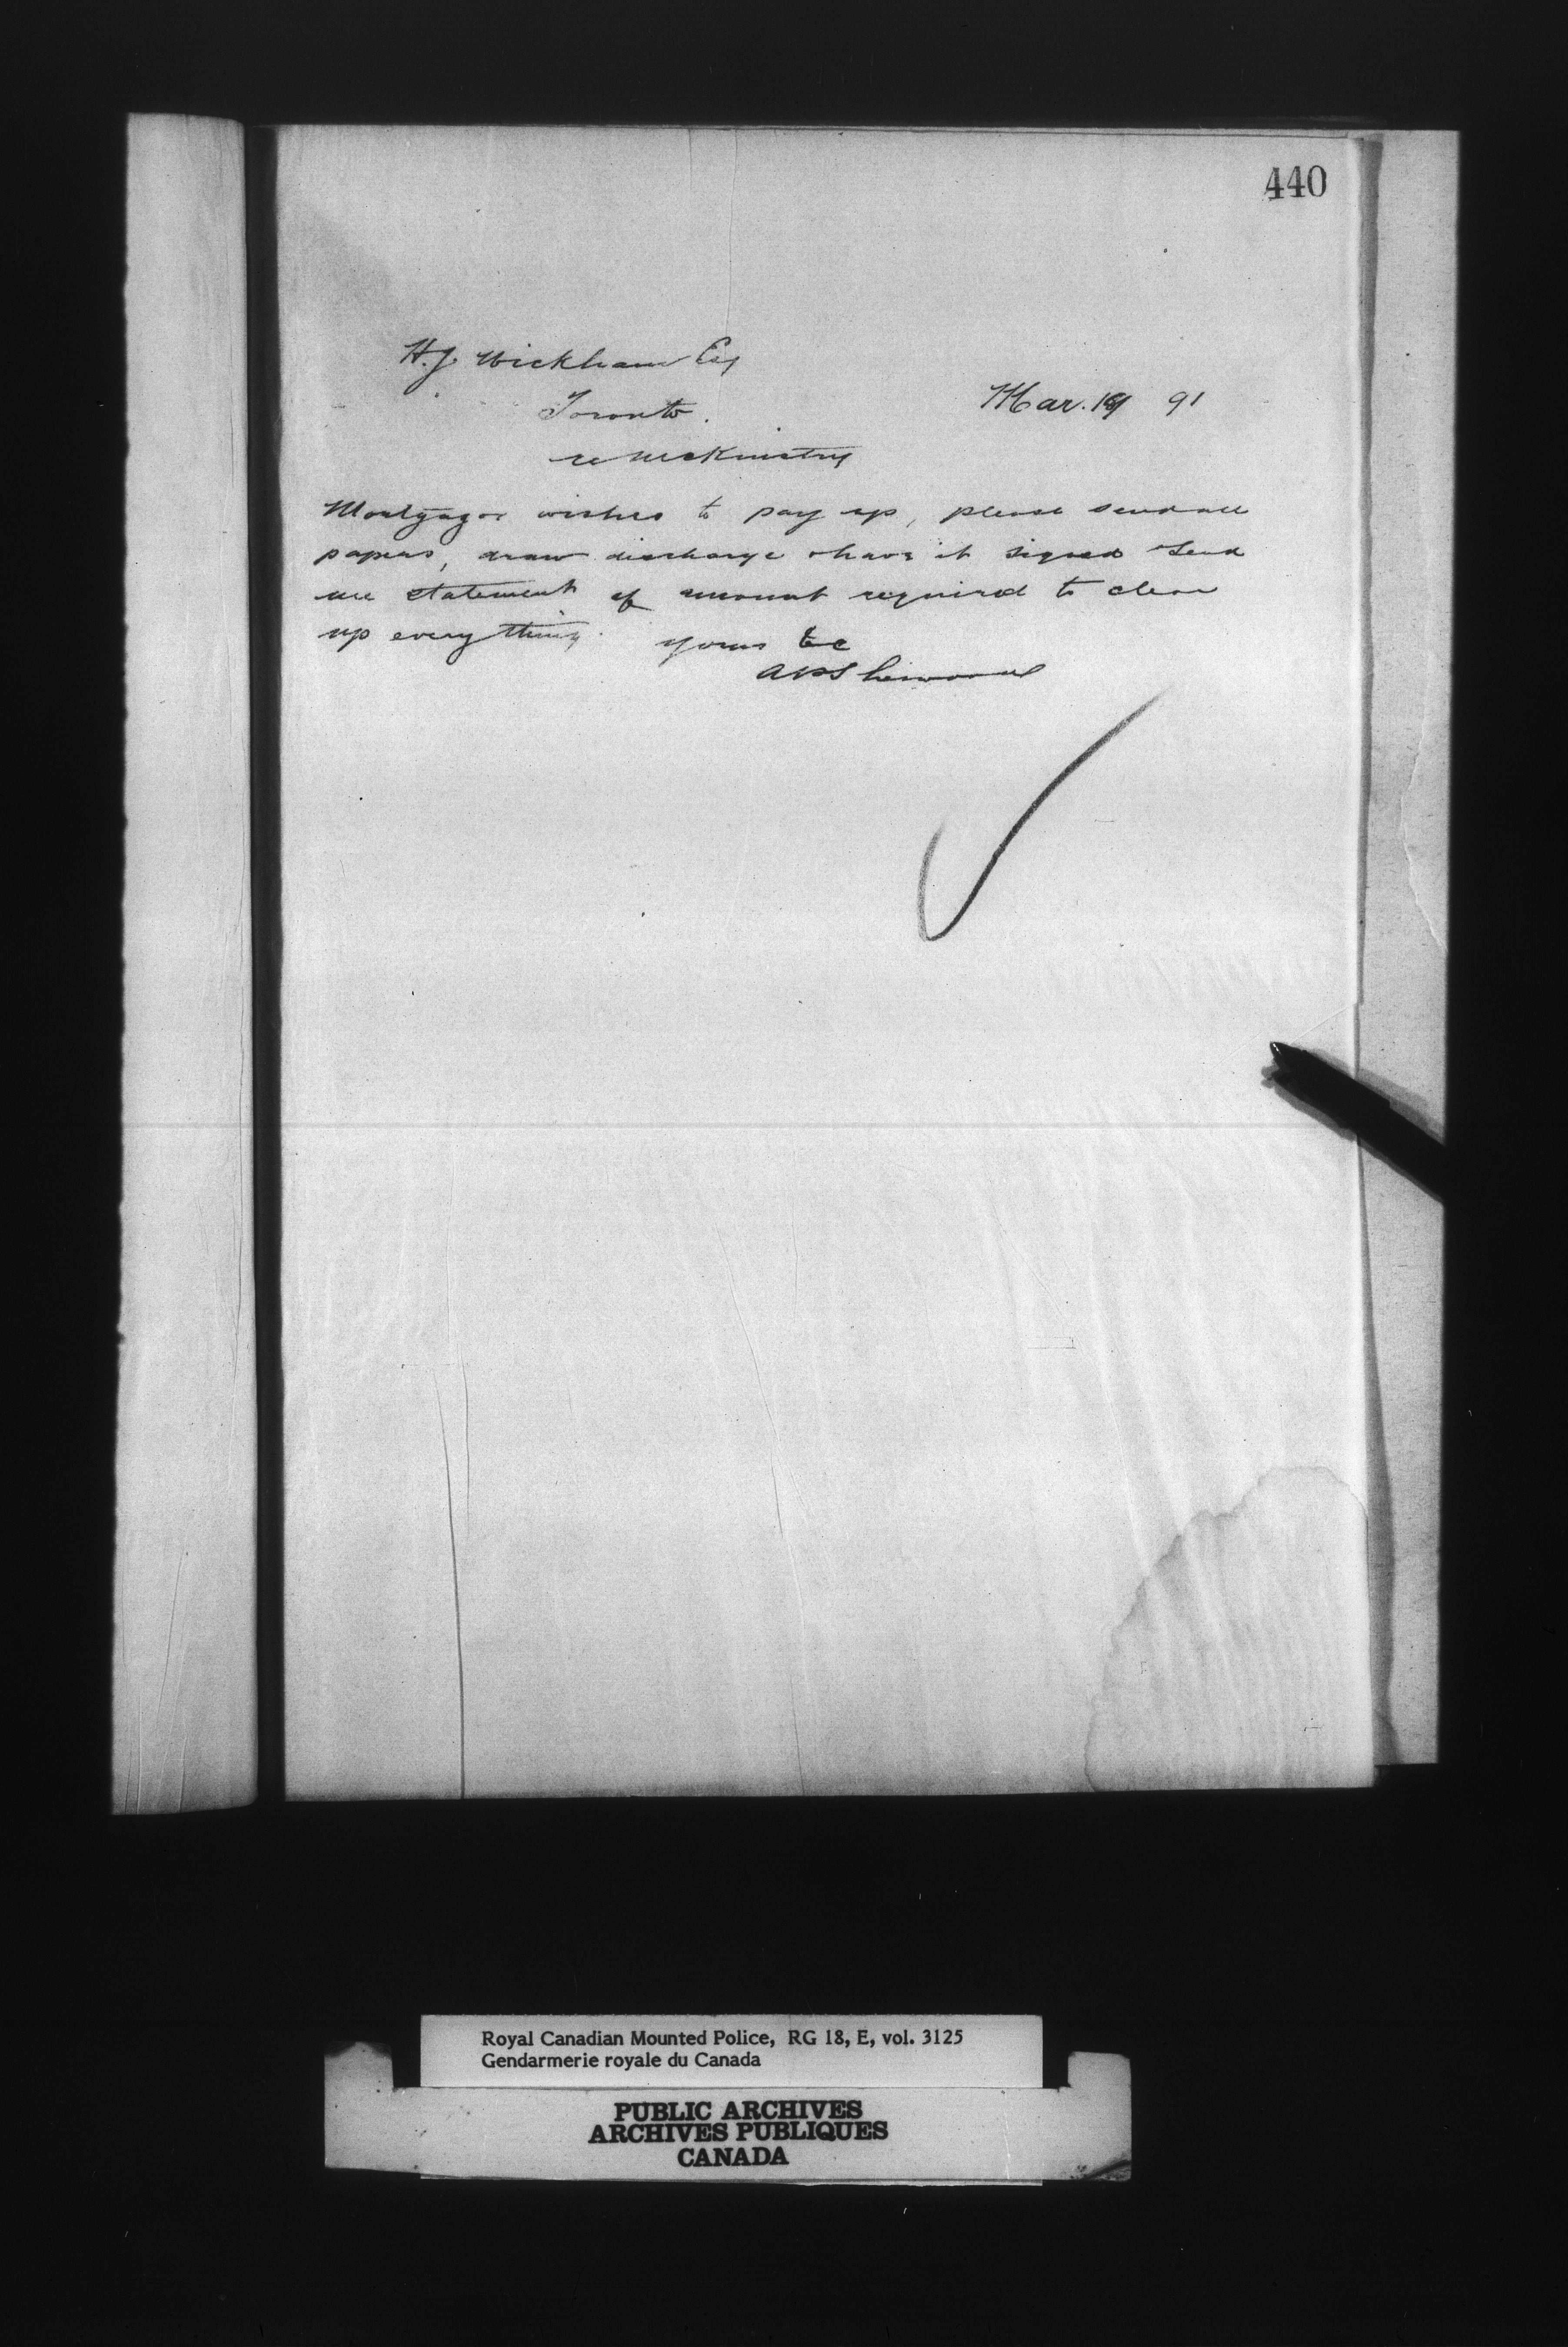 440
H.J. Wickham Esq
Toronto.
Mar. 19 91
re McKinstry
Mortgagor wishes to pay up, please send all
papers, draw discharge & have it signed & send
me statement of amount required to clear
up everything. yours &c
APSherwood
Royal Canadian Mounted Police, RG 18, E, vol. 3125
Gendarmerie royale du Canada
PUBLIC ARCHIVES
ARCHIVES PUBLIQUES
CANADA